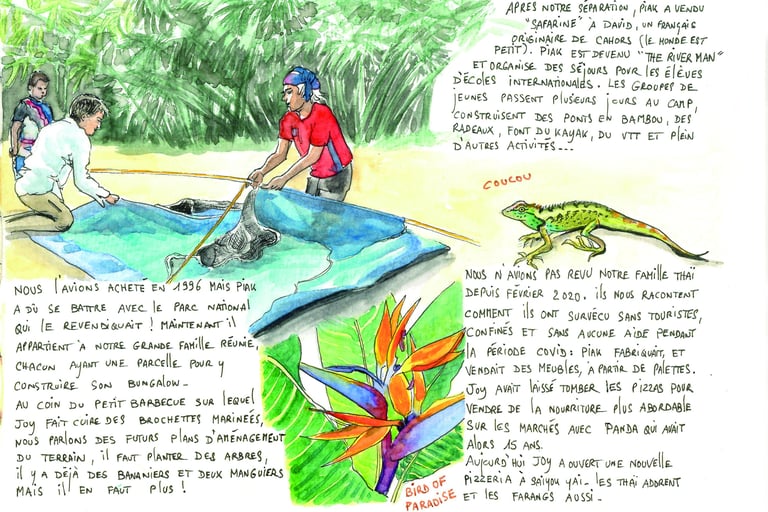 APRÈS NOTRE SÉPARATION, PIAK A VENDU
"SAFARINE" À DAVID, UN FRANÇAIS
ORIGINAIRE DE CAHORS (LE MONDE EST
PETIT). PIAK EST DEVENU "THE RIVER MAN"
ET ORGANISE DES SÉJOURS POUR LES ÉLÈVES
D'ÉCOLES INTERNATIONALES. LES GROUPES DE
JEUNES PASSENT PLUSEURS JOURS AU CAMP,
CONSTRUISENT DES PONTS EN BAMBOU, DES
RADEAUX, FONT DU KAYAK, DU VTT ET PLEIN
D'AUTRES ACTIVITÉS...
COUCOU
NOUS L'AVIONS ACHETÉ EN 1996 MAIS PIAK
A DÛ SE BATTRE AVEC LE PARC NATIONAL
QUI LE REVENDIQUAIT ! MAINTENANT IL
APPARTIENT À NOTRE GRANDE FAMILLE RÉUNIE,
CHACUN AYANT UNE PARCELLE POUR Y
CONSTRUIRE SON BUNGALOW_
AU COIN DU PETIT BARBECUE SUR LEQUEL
JOY FAIT CUIRE DES BROCHETTES MARINÉES,
NOUS PARLONS DES FUTURS PLANS D'AMÉNAGEMENT
DU TERRAIN, IL FAUT PLANTER DES ARBRES,
IL Y A DÉJÀ DES BANANIERS ET DEUX MANGUIERS
MAIS IL EN FAUT PLUS !
BIRD OF
PARADISE
NOUS N'AVIONS PAS REVU NOTRE FAMILLE THAÏ
DEPUIS FÉVRIER 2020. ILS NOUS RACONTENT
COMMENT ILS ONT SURVÉCU SANS TOURISTES,
CONFINÉS ET SANS AUCUNE AIDE PENDANT
LA PÉRIODE COVID : PIAK FABRIQUAIT, ET
VENDAIT DES MEUBLES, À PARTIR DE PALETTES.
JOY AVAIT LAISSÉ TOMBER LES PIZZAS POUR
VENDRE DE LA NOURRITURE PLUS ABORDABLE
SUR LES MARCHÉS AVEC PANDA QUI AVAIT
ALORS 15 ANS.
AUJOURD'HUI JOY A OUVERT UNE NOUVELLE
PIZZERIA À SAÏYOU YAÏ_ LES THAÏ ADORENT
ET LES FARANGS AUSSI_